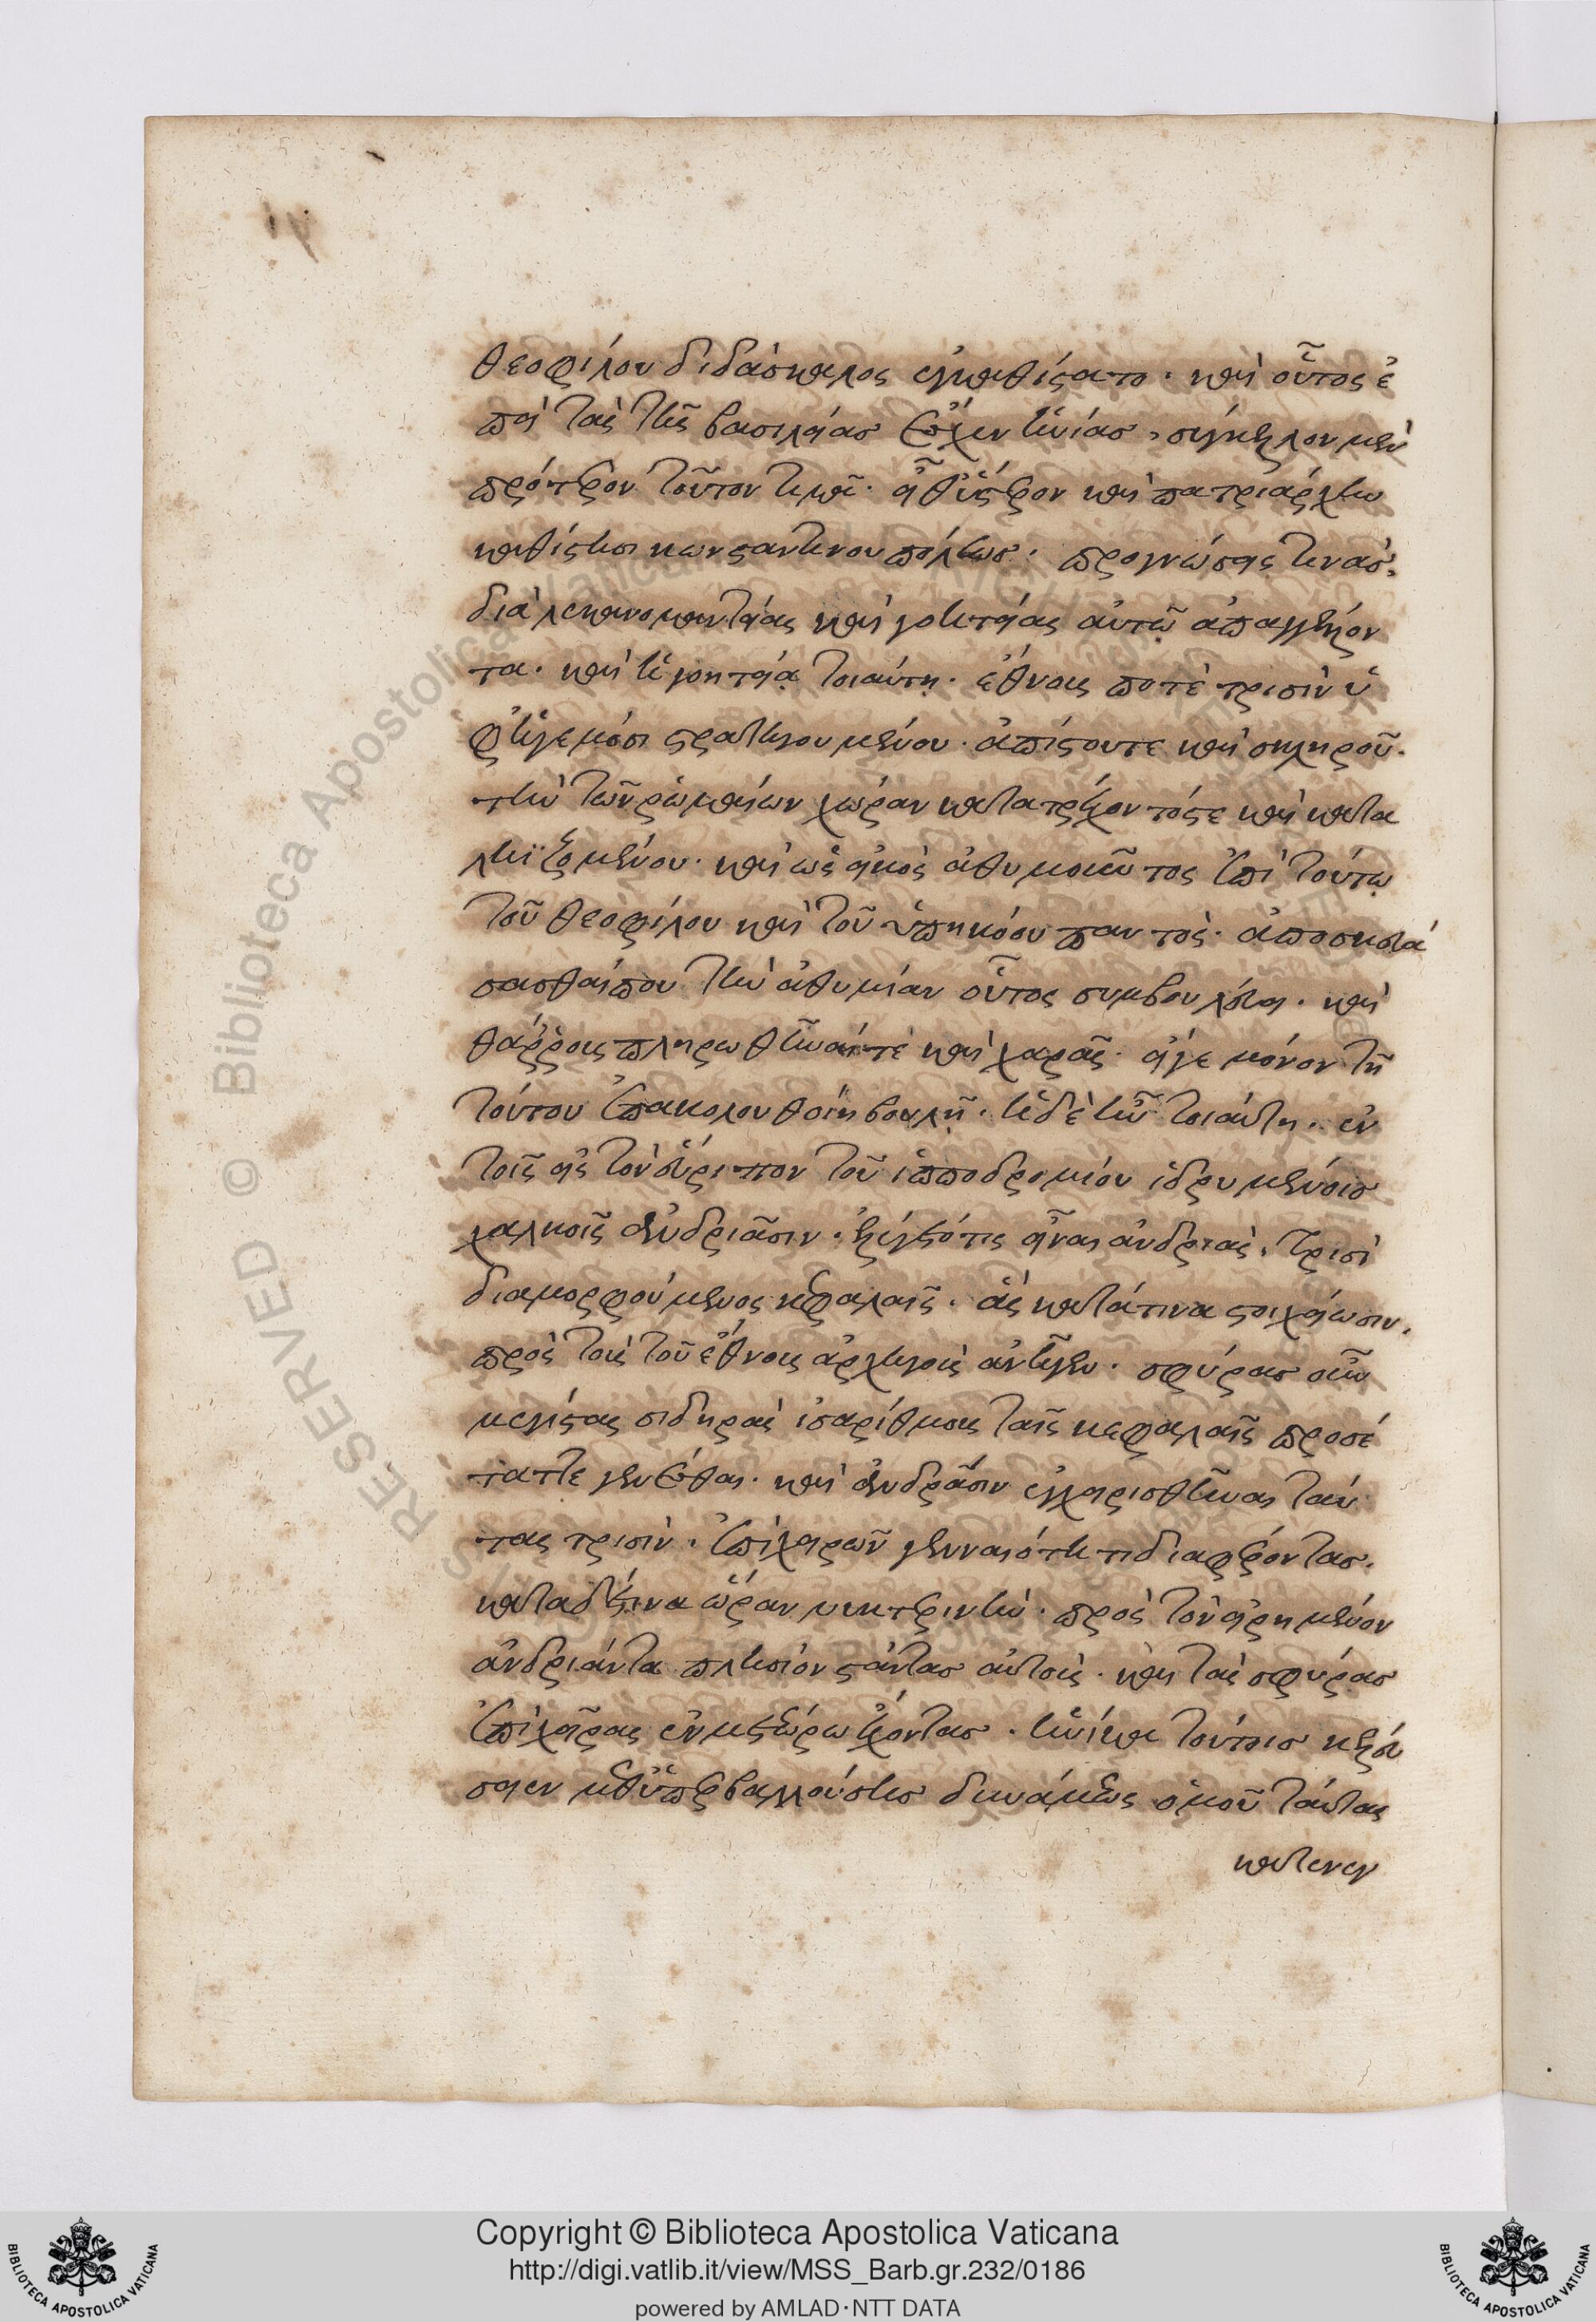 θεοφίλου διδάσκαλος ἐγκαθίσατο. καὶ οὗτος ἐ
πεὶ τὰς τῆς βασιλείας ἔσχεν ἡνίας, σύγκελλον μὲν
πρότερον τοῦτον τιμᾶ. εἶθ' ὕστερον καὶ πατριάρχην
καθίστησι κωνσαντινουπόλεως. προγνώσεις τινὰς,
διὰ λεκανομαντείας καὶ γοητείας αὐτῶ ἀπαγγέλλον
τα. καὶ ἡ γοητεία τοιαύτη. ἔθνους ποτὲ τρισὶν ὑ
φ' ἡγεμόσι στρατηγουμένου. ἀπίστου τε καὶ σκληροῦ.
τὴν τῶν ῥωμαίων χώραν κατατρέχοντός τε καὶ κατα
ληϊζομένου. καὶ ὡς εἰκὸς ἀθυμοῦντος ἐπὶ τούτω
τοῦ θεοφίλου καὶ τοῦ ὑπηκόου παντὸς. ἀποσκεδά
σασθαί που τὴν ἀθυμίαν οὗτος συμβουλεύει. καὶ
θάρρους πληρωθῆναί τε καὶ χαρᾶς. εἴγε μόνον τῆ
τούτου ἐπακολουθοίη βουλῆ. ἡ δὲ ἦν τοιαύτη. ἐν
τοῖς εἰς τὸν εὔριπον τοῦ ἱπποδρομίου ἱδρυμένοις
χαλκοῖς ἀνδριᾶσιν. ἐλέγετό τις εἶναι ἀνδριὰς, τρισὶ
διαμορφούμενος κεφαλαῖς. ἃς κατά τινα στοιχείωσιν,
πρὸς τοὺς τοῦ ἔθνους ἀρχηγοὺς ἀνῆγεν. σφύρας οὖν
μεγίστας σιδηρὰς ἰσαρίθμους ταῖς κεφαλαῖς προσέ
ταττε γενέσθαι. καὶ ἀνδράσιν ἐγχειρισθῆναι ταύ
τας τρισὶν. ἐπὶ χειρῶν γενναιότητι διαφέροντας.
κατὰ δέ τινα ὥραν νυκτερινὴν. πρὸς τὸν εἰρημένον
ἀνδριάντα πλησίον στάντας αὐτοὺς. καὶ τὰς σφύρας
ἐπὶ χεῖρας ἐν μετεώρω ἔχοντας. ἡνίκα τούτοις κελεύ
σειεν μεθ' ὑπερβαλλούσης δυνάμεως ὁμοῦ ταύτας
κατενεγ
Copyright © Biblioteca Apostolica Vaticana
http://digi.vatlib.it/view/MSS_Barb.gr.232/0186
powered by AMLAD·NTT DATA